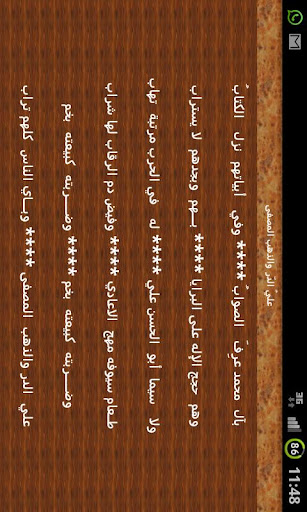 3G 86 11:48
علي الدر والذهب المصفى
بآل محمد عرفَ الصوابُ **** وفي أبياتهم نزل الكتابُ
وهم حجج الإله على البرايا **** بـــهم وبجدهم لا يستراب
ولا سيما أبو الحسن علي **** له في الحرب مرتبة تهاب
طعام سيوفه مهج الاعادي **** وفيض دم الرقاب لها شراب
وضـــربته كبيعته بخم **** وضـــربته كبيعته بخم
علي الدر والذهب المصفى **** وبـــاي الناس كلهم تراب